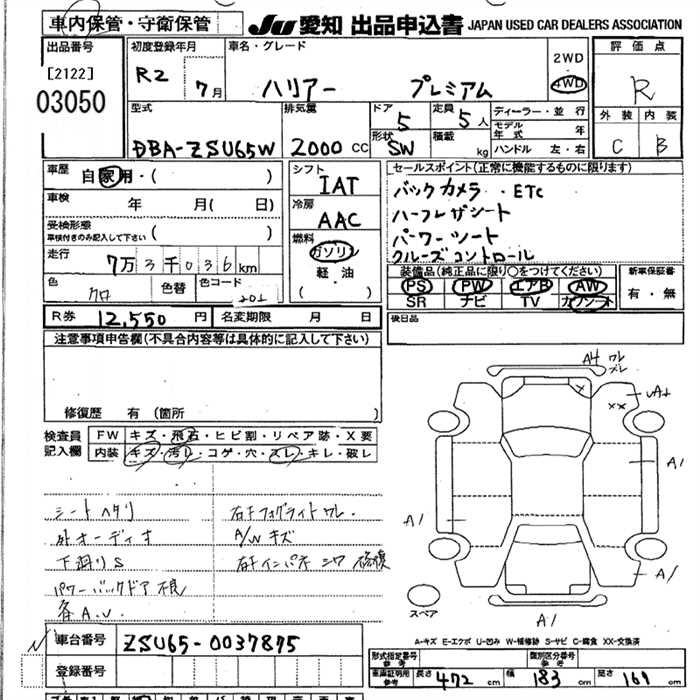 車内保管・守衛保管
JU 愛知 出品申込書 JAPAN USED CAR DEALERS ASSOCIATION
出品番号
[2122]
03050
初度登録年月
R2 7月
車名・グレード
ハリアー プレミアム
2WD
4WD
評価点
R
外装 内装
C B
型式
DBA-ZSU65W
排気量
2000 CC
ドア 5
形状 SW
定員 5 人
積載 kg
ディーラー・並行
モデル年式 年
ハンドル 左・右
車歴 自家用・( )
車検 年 月( 日)
受検形態
車検付きのみ記入して下さい ( )
走行 7万3千036km
色 クロ 色替 色コード 202
シフト IAT
冷房 AAC
燃料
ガソリン
軽・油
( )
セールスポイント(正常に機能するものに限ります)
バックカメラ . ETC
ハーフレザシート
パワーシート
クルーズコントロール
装備品(純正品に限り○をつけてください)
PS PW エアB AW
SR ナビ TV カワシート
新車保証書
有・無
R券 12,550円 名変期限 月 日
後日品
注意事項申告欄(不具合内容等は具体的に記入して下さい)
修復歴 有(箇所 )
検査員記入欄
FW キズ・飛石・ヒビ割・リペア跡・X要
内装 キズ・汚れ・コゲ・穴・スレ・キレ・破レ
シートヘタリ
外オーディオ
下廻りS
パワーバックドア不良
各A.U
右フォグライトワレ.
A/Wキズ
右インパネ シワ 補修
A4 ワレ
ズレ
×
××
A1
A1
A1
A1
スペア
A-キズ E-エクボ U-凹み W-補修跡 S-サビ C-腐食 XX-交換済
車台番号 ZSU65-0037875
登録番号
形式指定番号
参考
類別区分番号
参考
車庫証明用
参考
長さ 472 cm 幅 183 cm 高さ 169 cm